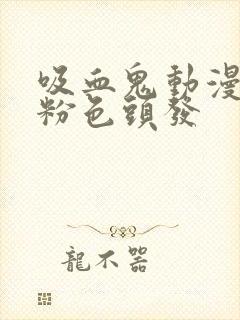 吸血鬼動漫
粉色頭發
龍不器